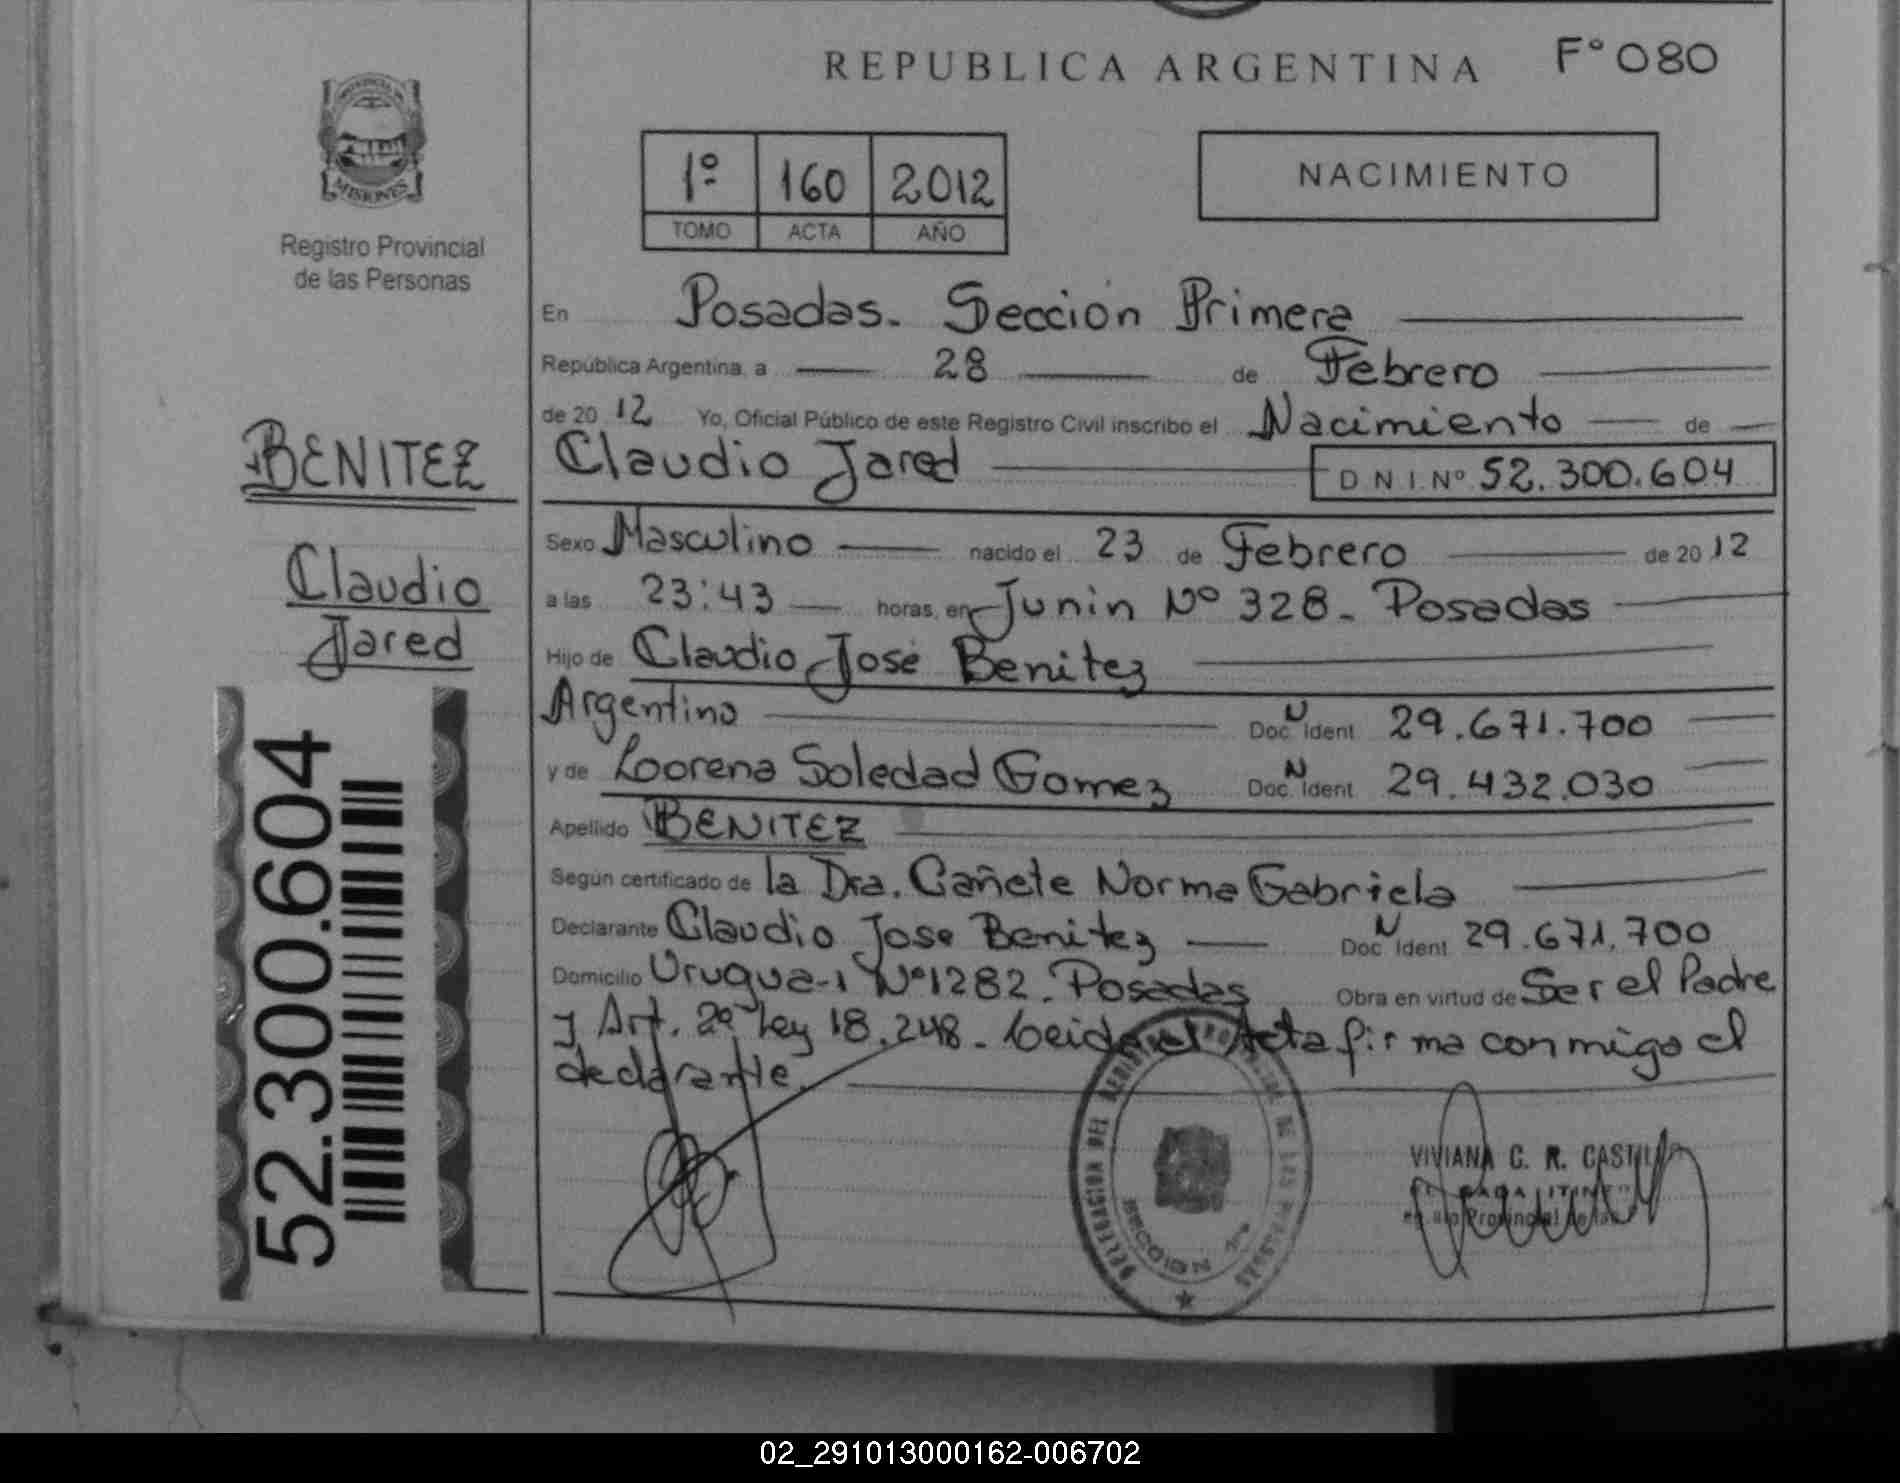 REPUBLICA ARGENTINA
Fº 080
PROVINCIA DE
MISIONES
Registro Provincial
de las Personas
1º 160 2012
TOMO ACTA AÑO
NACIMIENTO
En Posadas. Sección Primera
República Argentina, a 28 de Febrero
de 20 12 Yo, Oficial Público de este Registro Civil inscribo el Nacimiento de
Claudio Jared D N I Nº 52.300.604
BENITEZ
Claudio
Jared
Sexo Masculino nacido el 23 de Febrero de 20 12
a las 23:43 horas, en Junin Nº 328 - Posadas
Hijo de Claudio José Benitez
Argentino Doc. N Ident 29.671.700
y de Lorena Soledad Gomez Doc. N Ident 29.432.030
Apellido BENITEZ
Según certificado de la Dra. Cañete Norma Gabriela
Declarante Claudio Jose Benitez Doc N Ident 29.671.700
Domicilio Urugua-i Nº 1282. Posadas Obra en virtud de Ser el Padre
y Art. 2º Ley 18.248. Leida el Acta firma conmigo el
declarante.
52.300.604
DELEGACION DEL REGISTRO PROVINCIAL DE LAS PERSONAS
SECCION 1ª
VIVIANA C. R. CASTILLO
02_291013000162-006702